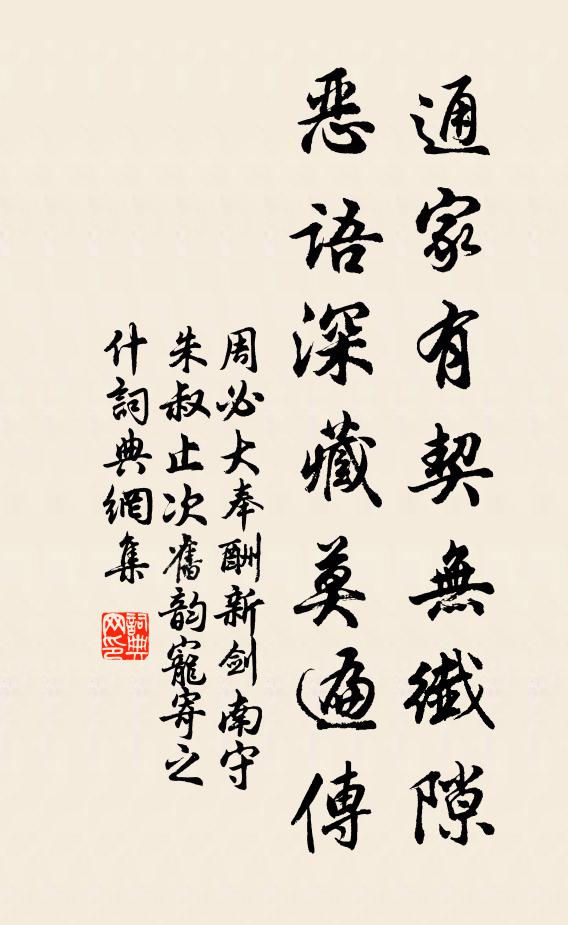 通家有契無纖隙
惡語深藏莫遍傳
周必大奉酬新劍南守
朱叔止次舊韵寵寄之
什詞典網集
詞典网印